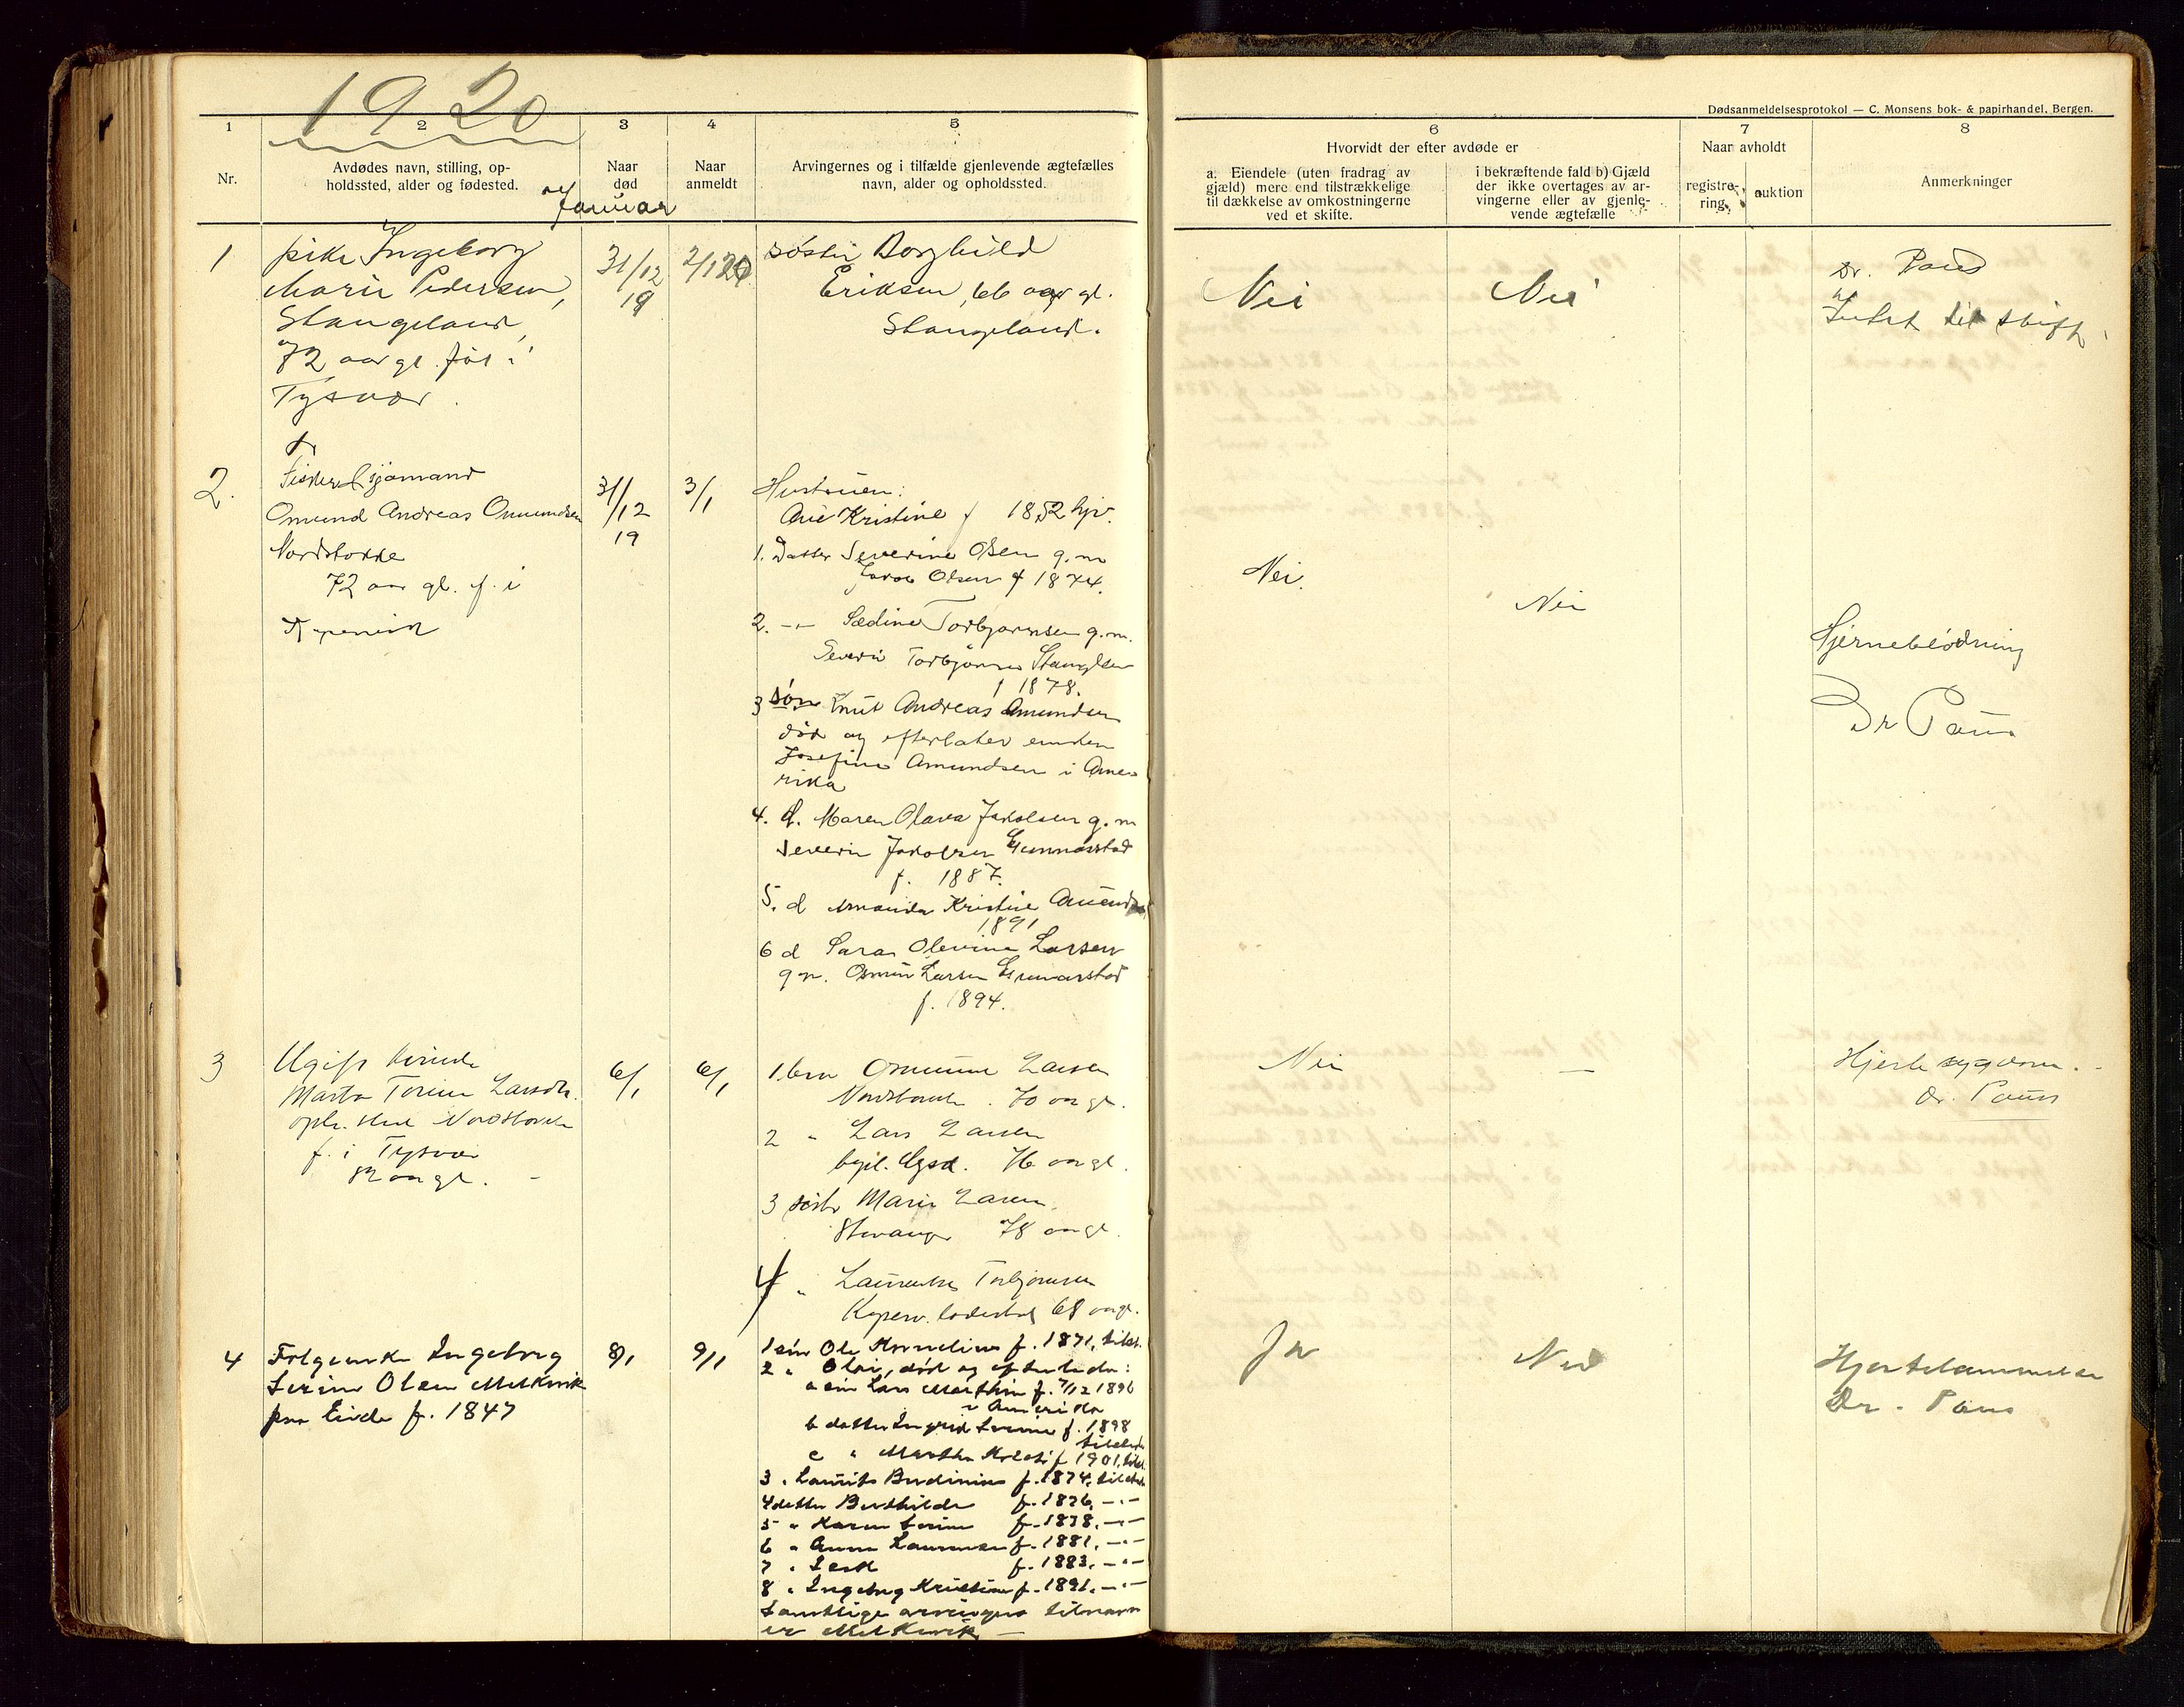 1920
Dødsanmeldelsesprotokol — C. Monsens bok- & papirhandel, Bergen.
1 2 3 4 5 6 7 8
Nr.
Avdødes navn, stilling, op-
holdssted, alder og fødested.
Naar
død
Naar
anmeldt
Arvingernes og i tilfælde gjenlevende ægtefælles
navn, alder og opholdssted.
Hvorvidt der efter avdøde er
a. Eiendele (uten fradrag av
gjæld) mere end tilstrækkelige
til dækkelse av omkostningerne
ved et skifte.
i bekræftende fald b) Gjæld
der ikke overtages av ar-
vingerne eller av gjenle-
vende ægtefælle
Naar avholdt
registre-
ring.
auktion
Anmerkninger
Januar
1
pike Ingeborg
Marie Pedersen,
Stangeland,
72 aar gl. født i
Tysvær.
31/12
19
2/1 20
søster Borghild
Eriksen, 66 aar gl.
Stangeland.
Nei
Nei
Dr. Paus
Intet til skifte
2.
Fisker sjømand
Omund Andreas Omundsen
Nordstokke
72 aar gl. f. i
31/12
19
3/1
Hustruen:
Ane Kristine f 1852 hjv.
1. Datter Severine Olsen g.m
Olsen f 1874.
2. -"- Sædine Torbjørnsen g.m.
Severin Torbjørnsen
f 1878.
3 søn Knut Andreas Amundsen
død og efterlater enken
Josefine Amundsen i Ame
rika
4. d. Maren Olava Jakobsen g.m
Severin Jakobsen Gunnarstad
f. 1887.
5. d Amanda Kristine
1891
6 d Sara Olevine Larsen
g m. Osmun Larsen Gunnarstad
f. 1894.
Nei.
Nei
Hjerneblødning
Dr Paus
3
Ugift kvinde
Marta Torine Larsdtr.
Nordstokke
f. i Tysvær
82 aar gl.
6/1
6/1
1. bror Osmund Larsen
Nordstokke. 70 aar gl.
2 " Lars Larsen
76 aar gl.
3 søster Marie Larsen
Stavanger 78 aar gl.
4 " Torbjørnsen
Koperv. ladested 68 aar gl.
Nei
—
Hjertesygdom.
dr. Paus
4
Folgeenke Ingeborg
Serine Olsen Melkevik
paa Eide f. 1847
8/1
9/1
1 søn Ole Kornelius f. 1871, tilst.
2 " Olai, død og efterlader:
a søn Lars Marthin f. 7/12 1896
i Amerika
b datter Ingrid Serine f. 1898
tilstede
c " Martha f 1901, tilst.
3 " Laurits Berdinius f. 1874, tilstede
4 datter Berthilde f. 1876, -"-
5 " Karen Serine f. 1878, -"-
6 " Anna f. 1881, -"-
7 " f. 1883, -"-
8 " Ingeborg Kristine f. 1891, -"-
Samtlige arvingers tilnavn
er Melkevik —
Ja
Nei
Hjertelammelse
Dr. Paus